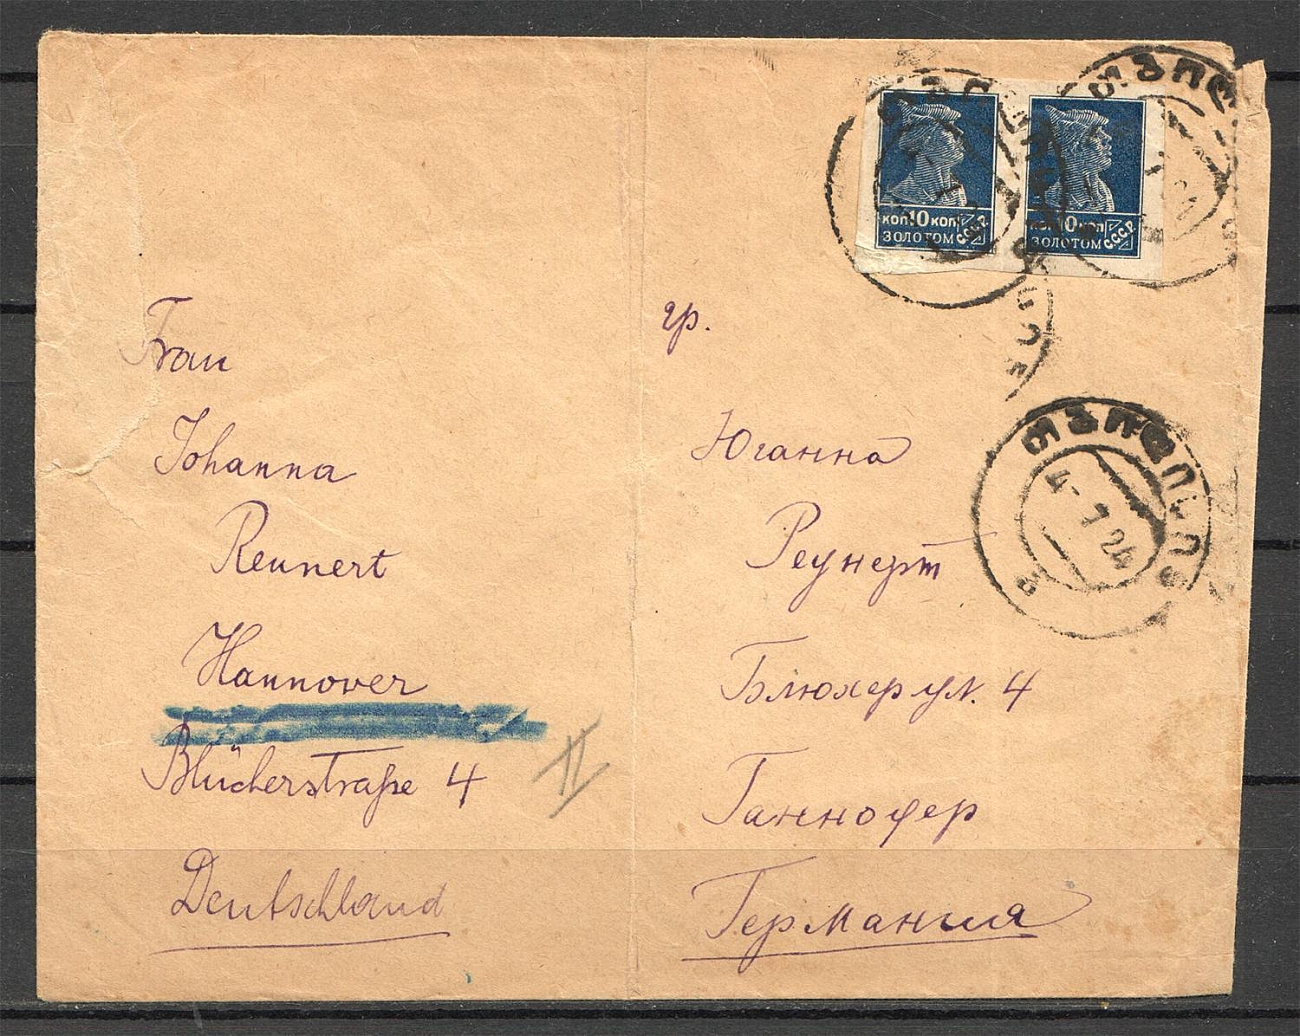 КОП 10 КОП
ЗОЛОТОМ С.С.С.Р.
КОП 10 КОП
ЗОЛОТОМ С.С.С.Р.
ტფილისი
4-7 24
Frau
Johanna
Reunert
Hannover
Blücherstraße 4
Deutschland
II
гр.
Юганна
Реунерт
Блюхер ул. 4
Ганнофер
Германия